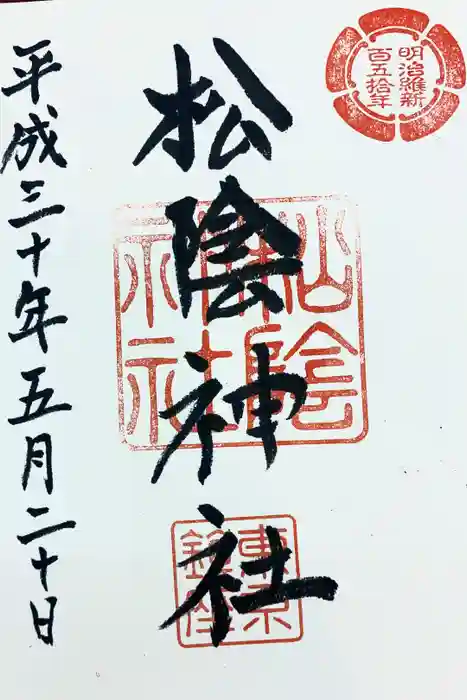 明治維新
百五拾年
松陰神社
松陰神社
東京
鎮座
平成三十年五月二十日